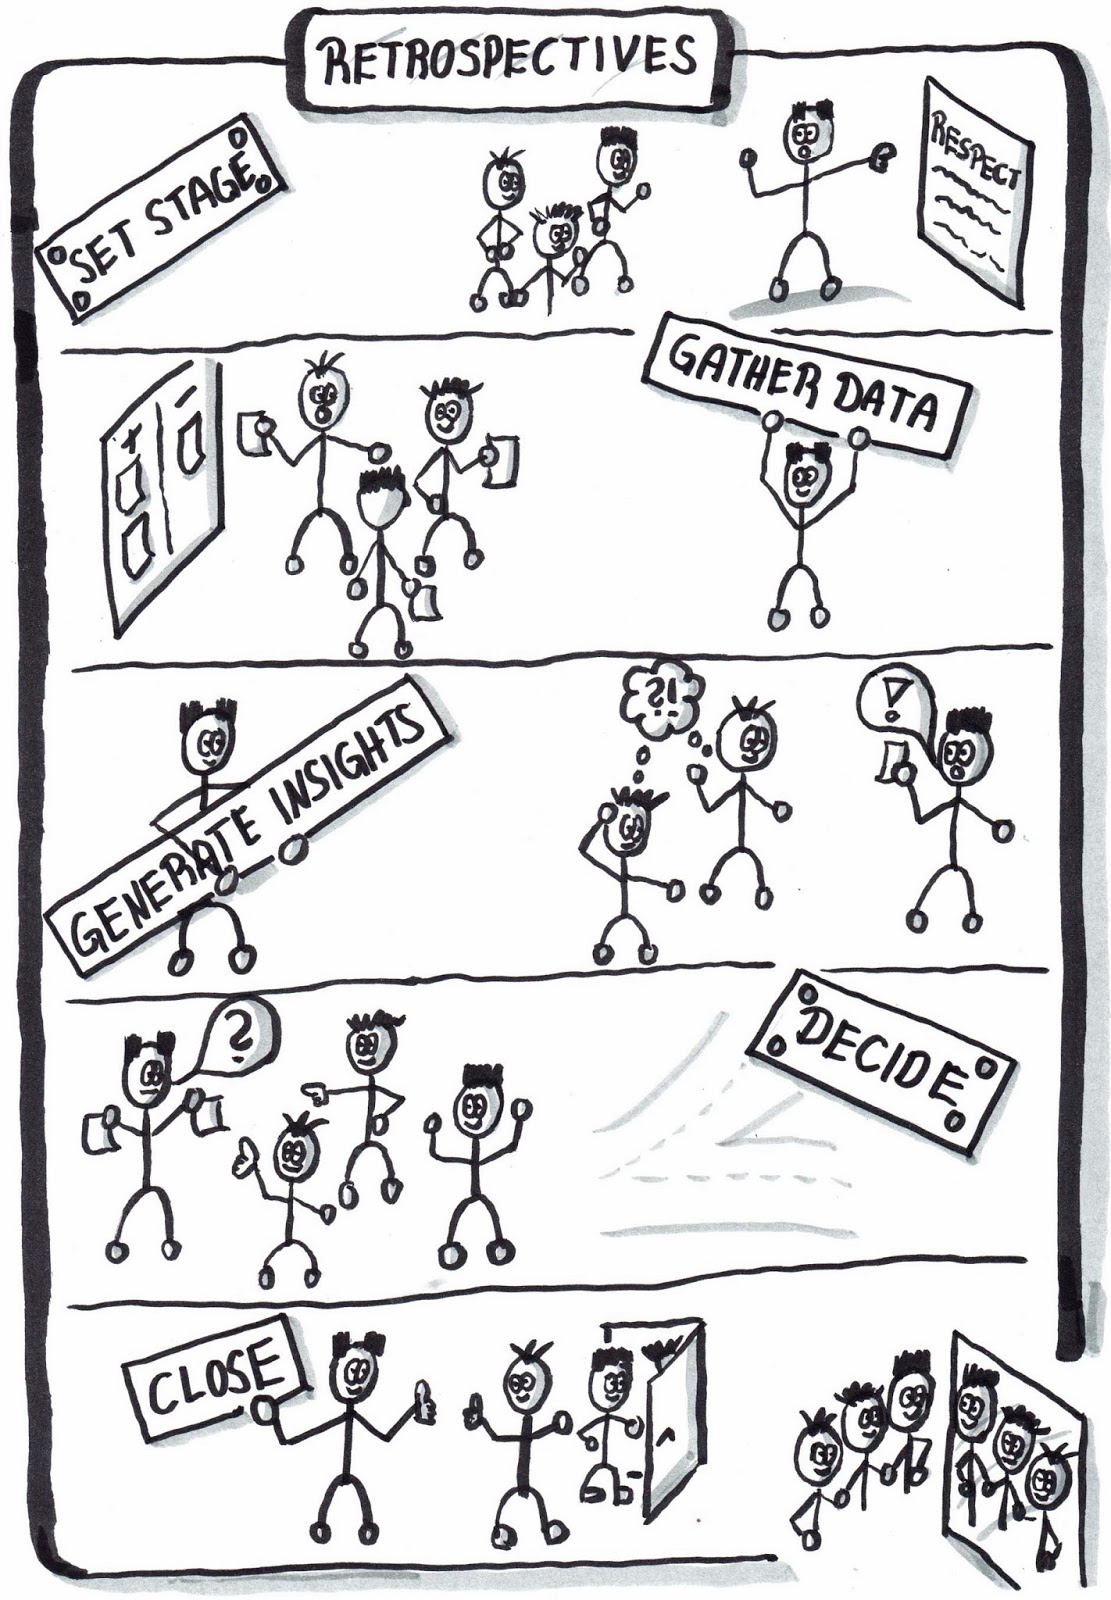 RETROSPECTIVES
SET STAGE
RESPECT
GATHER DATA
+
-
GENERATE INSIGHTS
?!
!
DECIDE
?
CLOSE